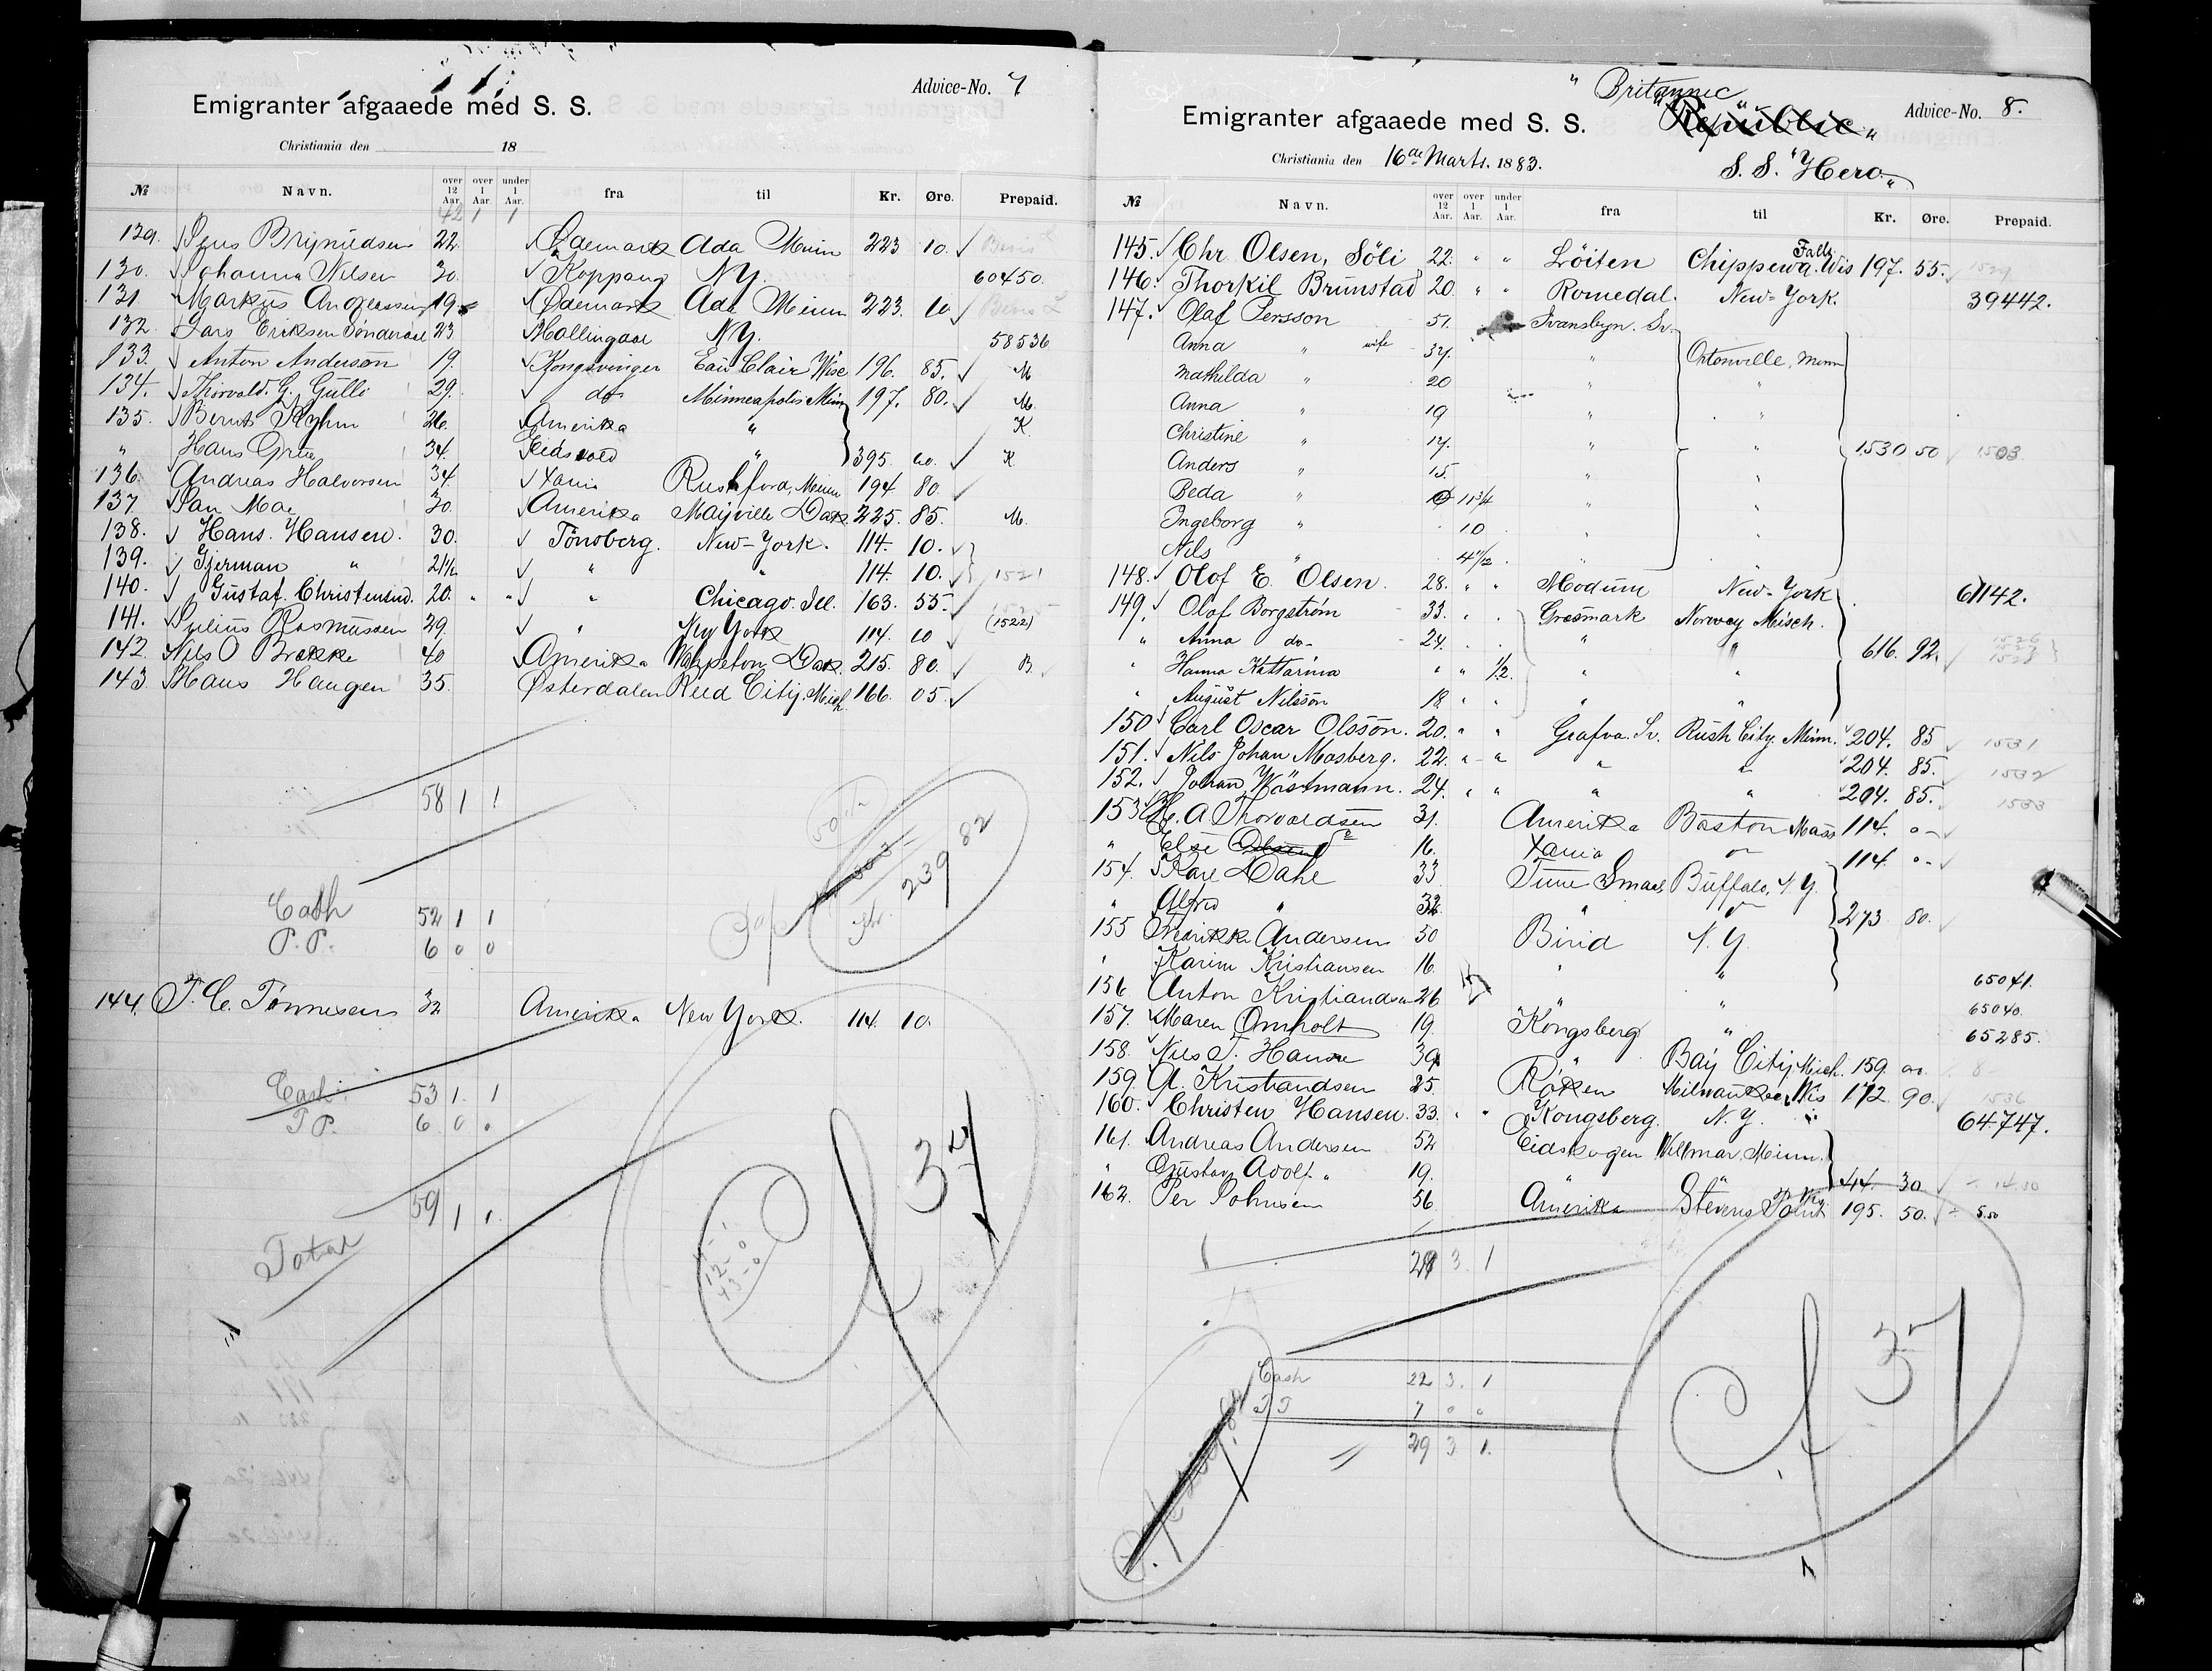 Advice-No. 7
Emigranter afgaaede med S. S.
Christiania den 18
№ Navn. over 12 Aar. over 1 Aar. under 1 Aar. fra til Kr. Øre. Prepaid.
42 1 1
129. Jens Brynildsen 22. Ødemark Ada Minn 223 10.
130. Johanna Nilsen 30. Koppang N.Y. 60450.
131. Markus 19. Ødemark Ada Minn 223. 10
132. Lars Eriksen 23. N.Y. 58536
133. Anton Anderson 19. Kongsvinger Eau Clair Wisc 196. 85. M
134. Thorvald G. Gulli 29. do Minneapolis Minn 197. 80. M.
135. Bernt 26. Amerika " K
" Hans 34. Eidsvold " 395. 60. K
136. Andreas Halvorsen 34. Xania Rushford, Minn 194 80.
137 Jan Moe 30. Amerika Mayville Dak. 225. 85. M.
138. Hans. Hansen. 30. Tönsberg. New-York. 114. 10.
139. Gjerman " 21½ " " 114. 10. 1521
140. Gustaf. Christensend. 20. " " " Chicago. Ill. 163. 55.
141. Julius Rasmussen 29. " New York 114. 10 (1522)
142 Nils O Brekke 40 Amerika Wahpeton Dak. 215. 80. B.
143. Hans Haugen 35. Østerdalen Reed City. Mich. 166. 05.
58 1 1
239 82
Cash 52 1 1
P.P. 6 0 0
144. T. C. Tønnesen 32 Amerika New York. 114. 10.
Cash 53 1. 1
P.P. 6. 0 0
59 1 1.
Total
11-1
12-0
13-0
" Britannic
Advice-No. 8.
Emigranter afgaaede med S. S. "Republic"
Christiania den 16de Marts. 1883.
S. S. "Hero"
№ Navn. over 12 Aar. over 1 Aar. under 1 Aar. fra til Kr. Øre. Prepaid.
145. Chr. Olsen, Söli 22. " " Löiten Chippewa Falls Wis 197. 55. 1529
146. Thorkil Brunstad 20. " " Romedal. New-York. 39442.
147. Olaf Persson 51. Svansbyn. Sv.
Anna " wife 37. " Ortonville, Minn
Mathilda " 20 "
Anna " 19 " "
Christine " 17. " " 1530 50 1503
Anders " 15. " "
Beda " 11¾ " "
Ingeborg " 10 " "
Nils " 4 11/12 "
148. Olof E. Olsen. 28. " " Modum New-York 61142.
149. Olof Borgström 33. " " Grasmark Norway Misch.
" Anna do- 24. " " 616. 92.
" Hanna Kattarina " " ½. " "
" August Nilsson 18. " " " "
150 Carl Oscar Olsson. 20. " " Grafva. Sv. Rush City. Minn. 204. 85 1531
151. Nils Johan Mosberg. 22. " " " " 204. 85. 1532
152. Johan Wästmann. 24. " " " " 204. 85. 1533
153 H. A Thorvaldsen 31. Amerika Boston Mass 114. "-
" Else Olsen 16. Xania " 114 "-
154. Kari Dahl 33 Buffalo, N.Y.
" Alfred " 32 " 273 80.
155 Marikke Andersen 50 Birid N.Y.
" Karin Kristiansen 16. " " 65041.
156 Anton Kristiandsen 26 " " 65040.
157. Maren Omholt 19. Kongsberg " 65285.
158. Nils T. Hansen 39 " Bay City Mich. 159. 00.
159. A. Kristiandsen 25. Röken Milwaukee, Wis 172 90. 1536
160. Christen Hansen. 33. " " Kongsberg. N.Y. 64747.
161. Andreas Andersen 52 Eidskogen Willmar, Minn.
" Gustav Adolf " 19. " " 414. 30
162. Per Johnsen 56 Amerika Stevens Point 195. 50. 5.50
29 3. 1
Cash 22 3. 1
7 0 0
29 3 1.